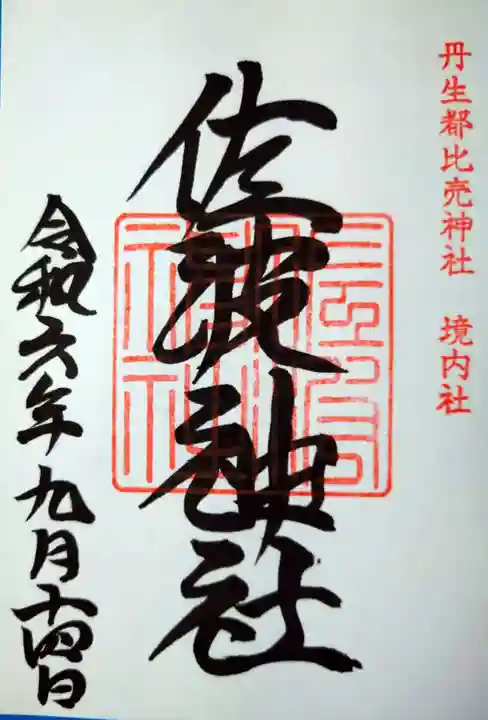 丹生都比売神社 境内社
佐波神社
令和六年九月十四日